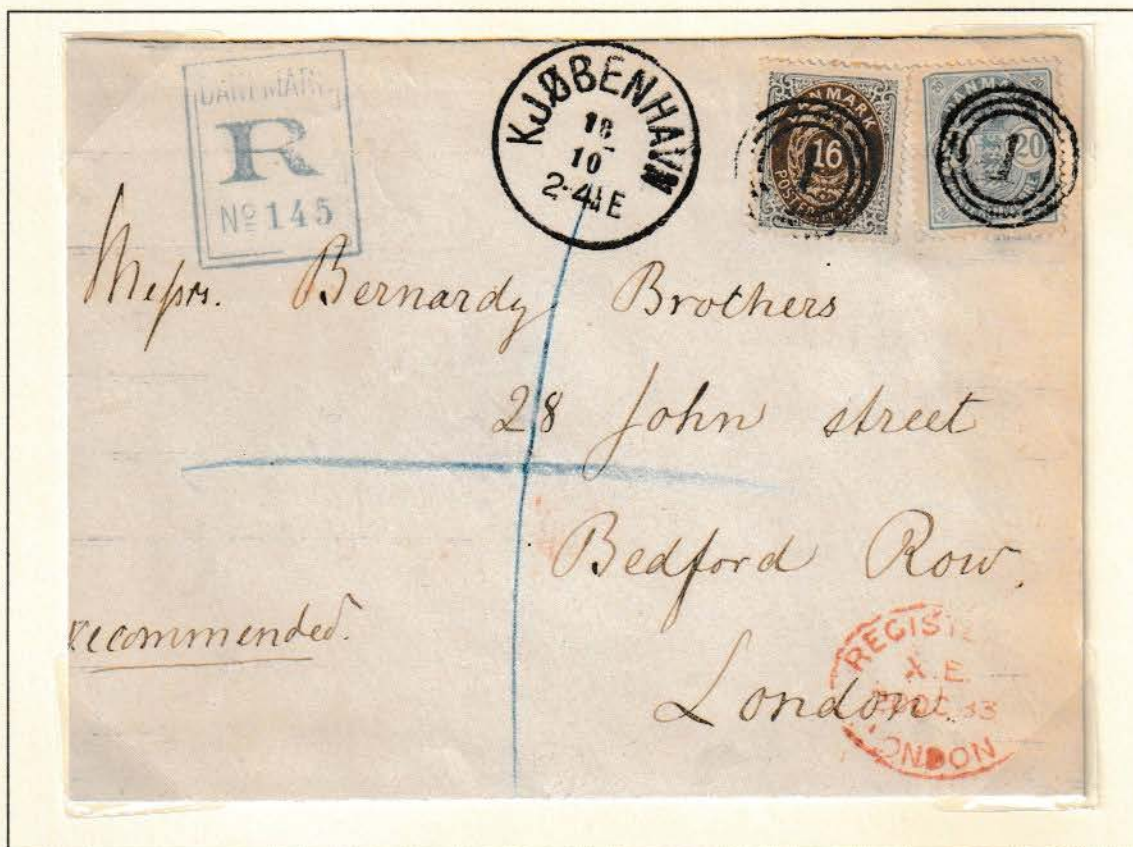 DANEMARK
R
Nº 145
KJØBENHAVN
18
10
2-4 E
DANMARK
16
POSTFRIM
1
DANMARK
20
1
Messrs. Bernardy Brothers
28 John street
Bedford Row.
London.
recommended.
REGISTE
X.E.
83
LONDON